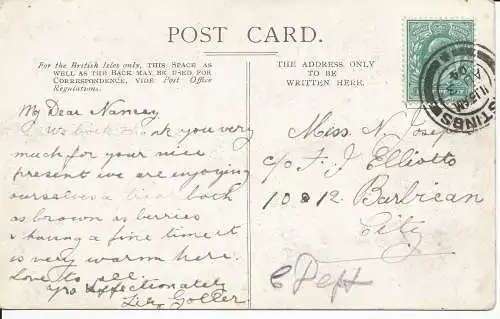 POST CARD.
For the British Isles only, THIS SPACE AS
WELL AS THE BACK MAY BE USED FOR
CORRESPONDENCE, VIDE Post Office
Regulations.
My Dear
you very
much for your nice
present we are enjoying
ourselves a treat back
as brown as berries
& having a fine time it
is very warm here.
Love to all.
Yrs affectionately
THE ADDRESS ONLY
TO BE
WRITTEN HERE.
Miss N. Joseph
c/o F. J. Elliott
10 & 12 Barbican
City
11.15 AM
04
TINGS